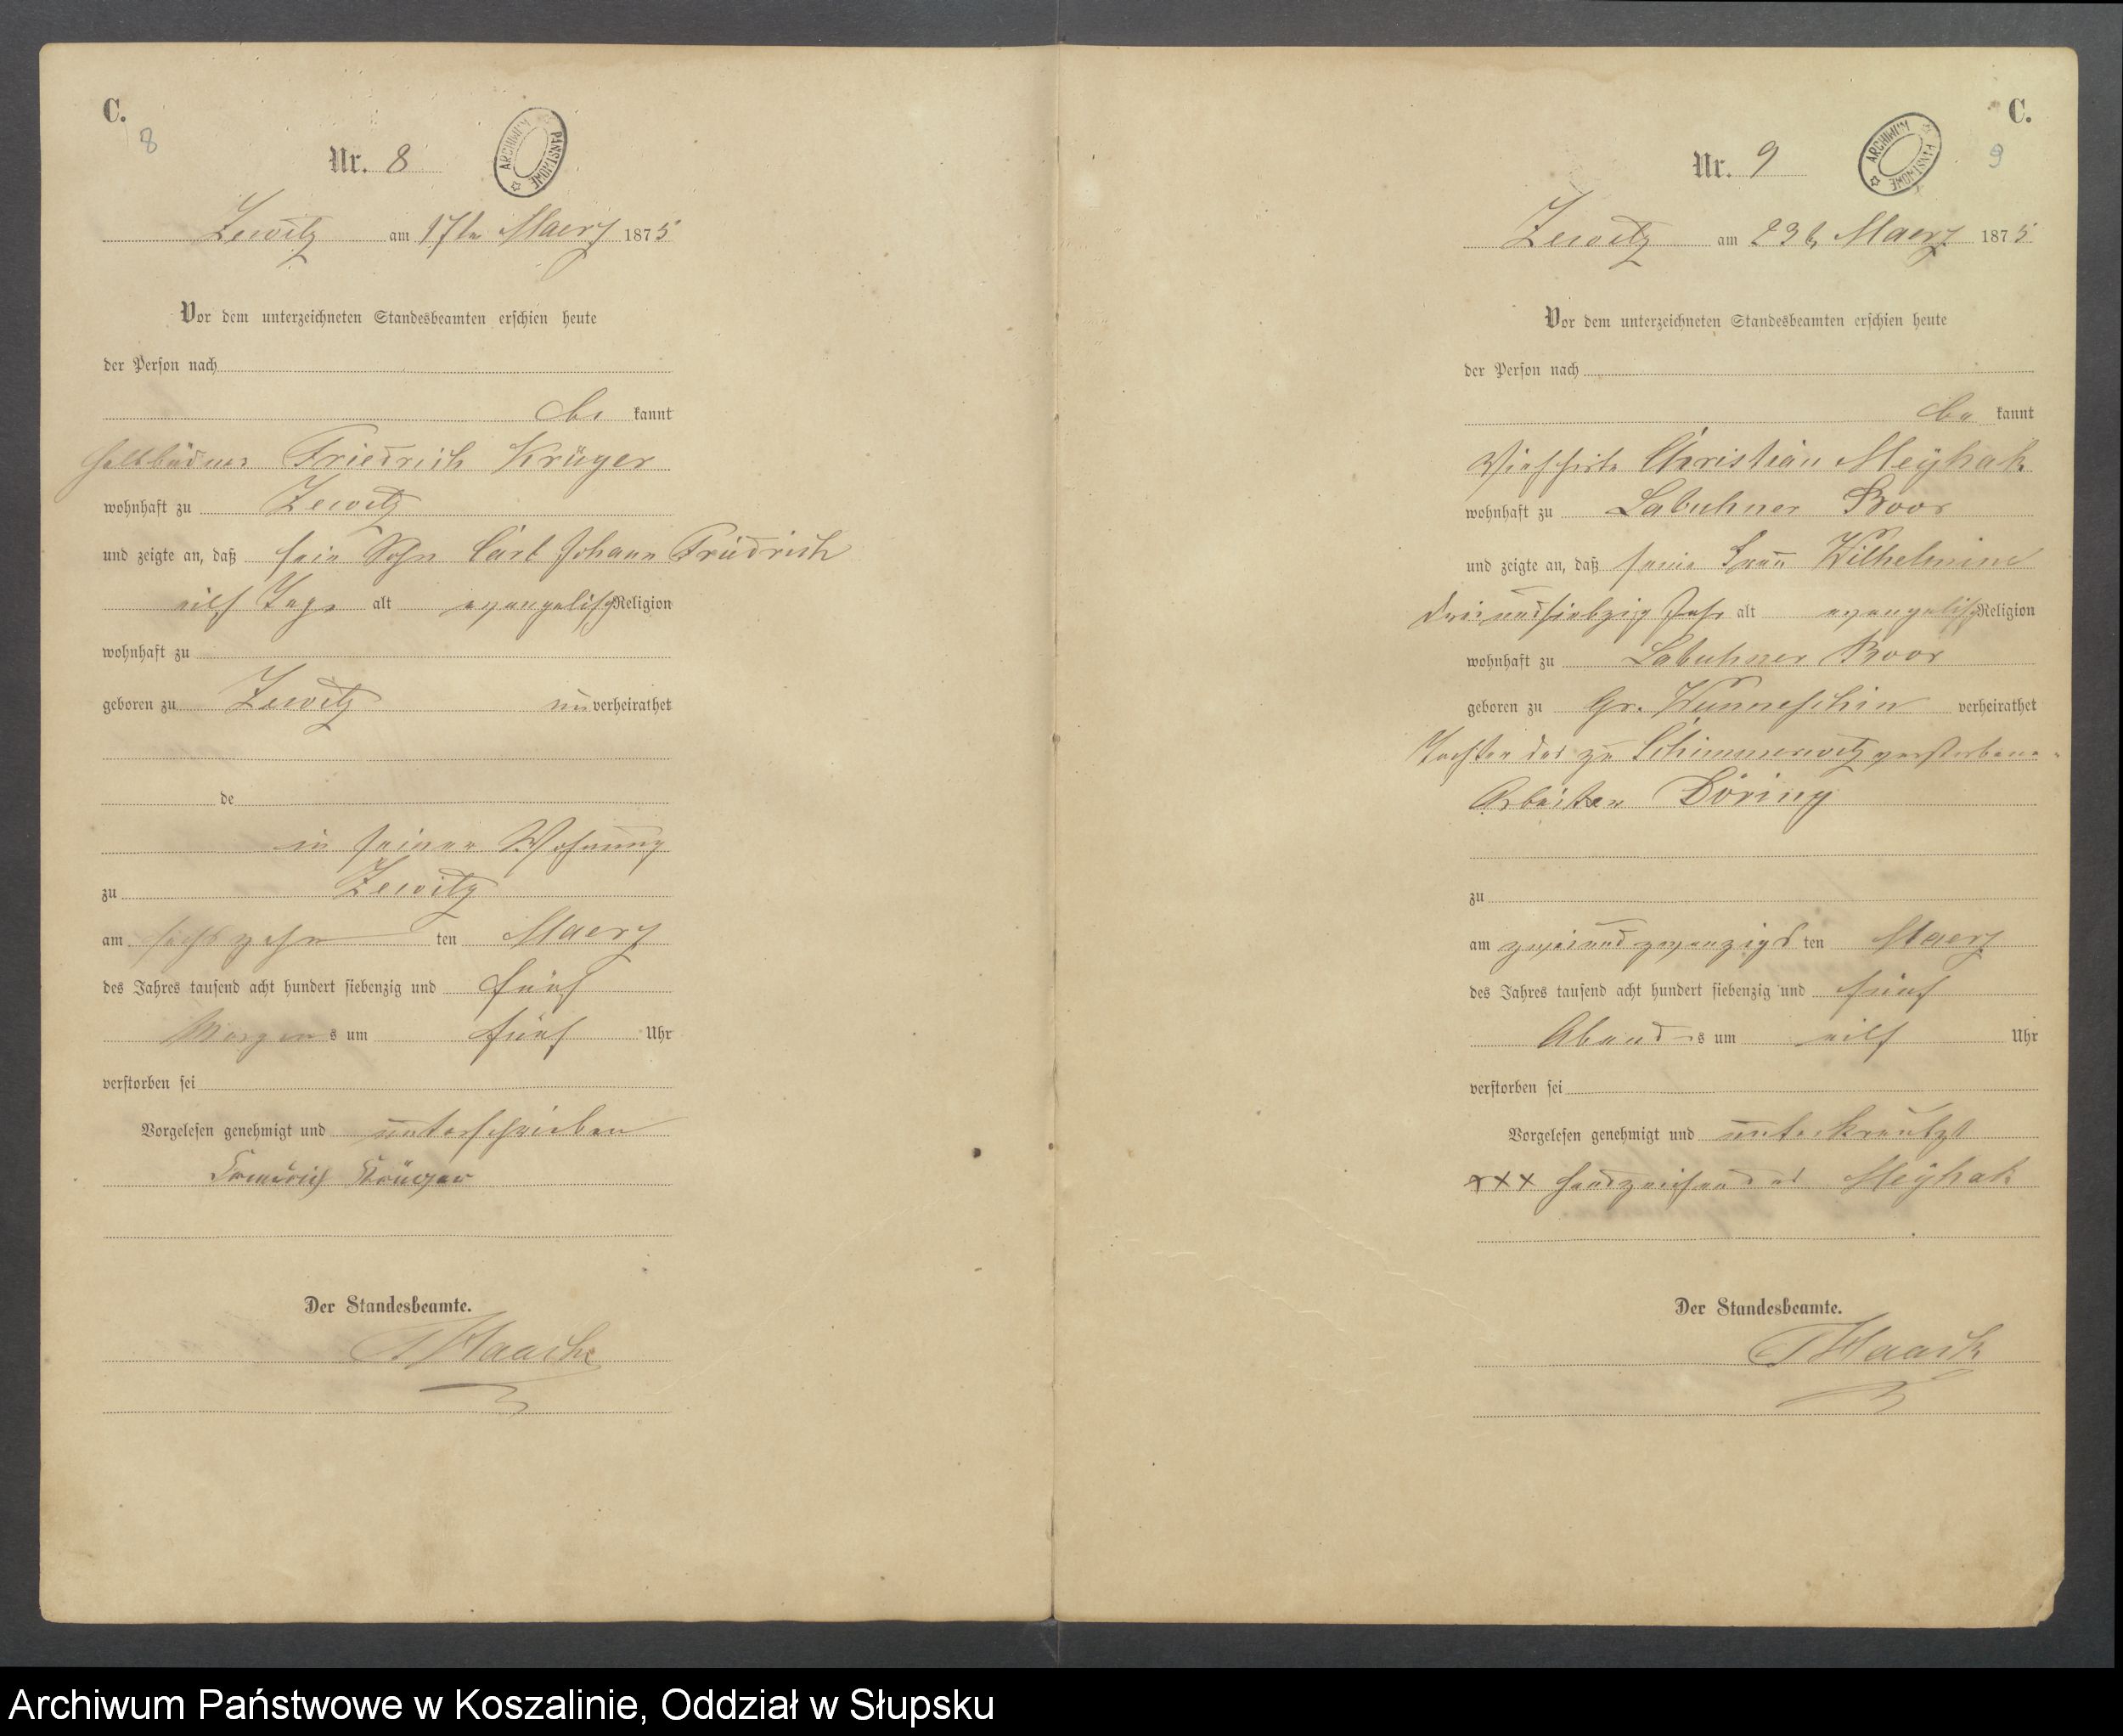 C.
8
Nr. 8
ARCHIWUM PAŃSTWOWE
Zewitz am 17te Maerz 1875
Vor dem unterzeichneten Standesbeamten erschien heute
der Person nach
be kannt
Halbbüdner Friedrich Krüger
wohnhaft zu Zewitz
und zeigte an, daß sein Sohn Carl Johann Friedrich
eilf Tage alt evangelisch Religion
wohnhaft zu
geboren zu Zewitz un verheirathet
de
in seiner Wohnung
zu Zewitz
am sechszehn ten Maerz
des Jahres tausend acht hundert siebenzig und fünf
Morgen s um fünf Uhr
verstorben sei
Vorgelesen genehmigt und unterschrieben
Friedrich Krüger
Der Standesbeamte.
Haacke
C.
9
Nr. 9
ARCHIWUM PAŃSTWOWE
Zewitz am 23t Maerz 1875
Vor dem unterzeichneten Standesbeamten erschien heute
der Person nach
be kannt
Viehhirte Christian Meÿhak
wohnhaft zu Labuhner Boor
und zeigte an, daß seine Frau Wilhelmine
dreiundsiebzig Jahr alt evangelisch Religion
wohnhaft zu Labuhner Boor
geboren zu Gr. Wunneschin verheirathet
Tochter des zu Schimmerwitz verstorbene
Arbeiter Döring
zu
am zweiundzwanzigs ten Maerz
des Jahres tausend acht hundert siebenzig und fünf
Abend s um eilf Uhr
verstorben sei
Vorgelesen genehmigt und unterkreutzt
xxx Handzeichen des Meÿhak
Der Standesbeamte.
Haack
Archiwum Państwowe w Koszalinie, Oddział w Słupsku